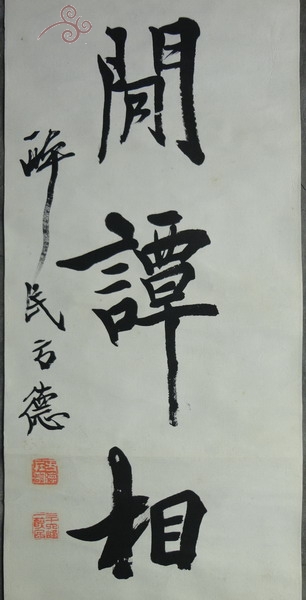 閒譚相
醉民方德